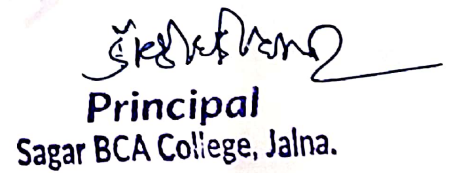 Principal
Sagar BCA College, Jalna.